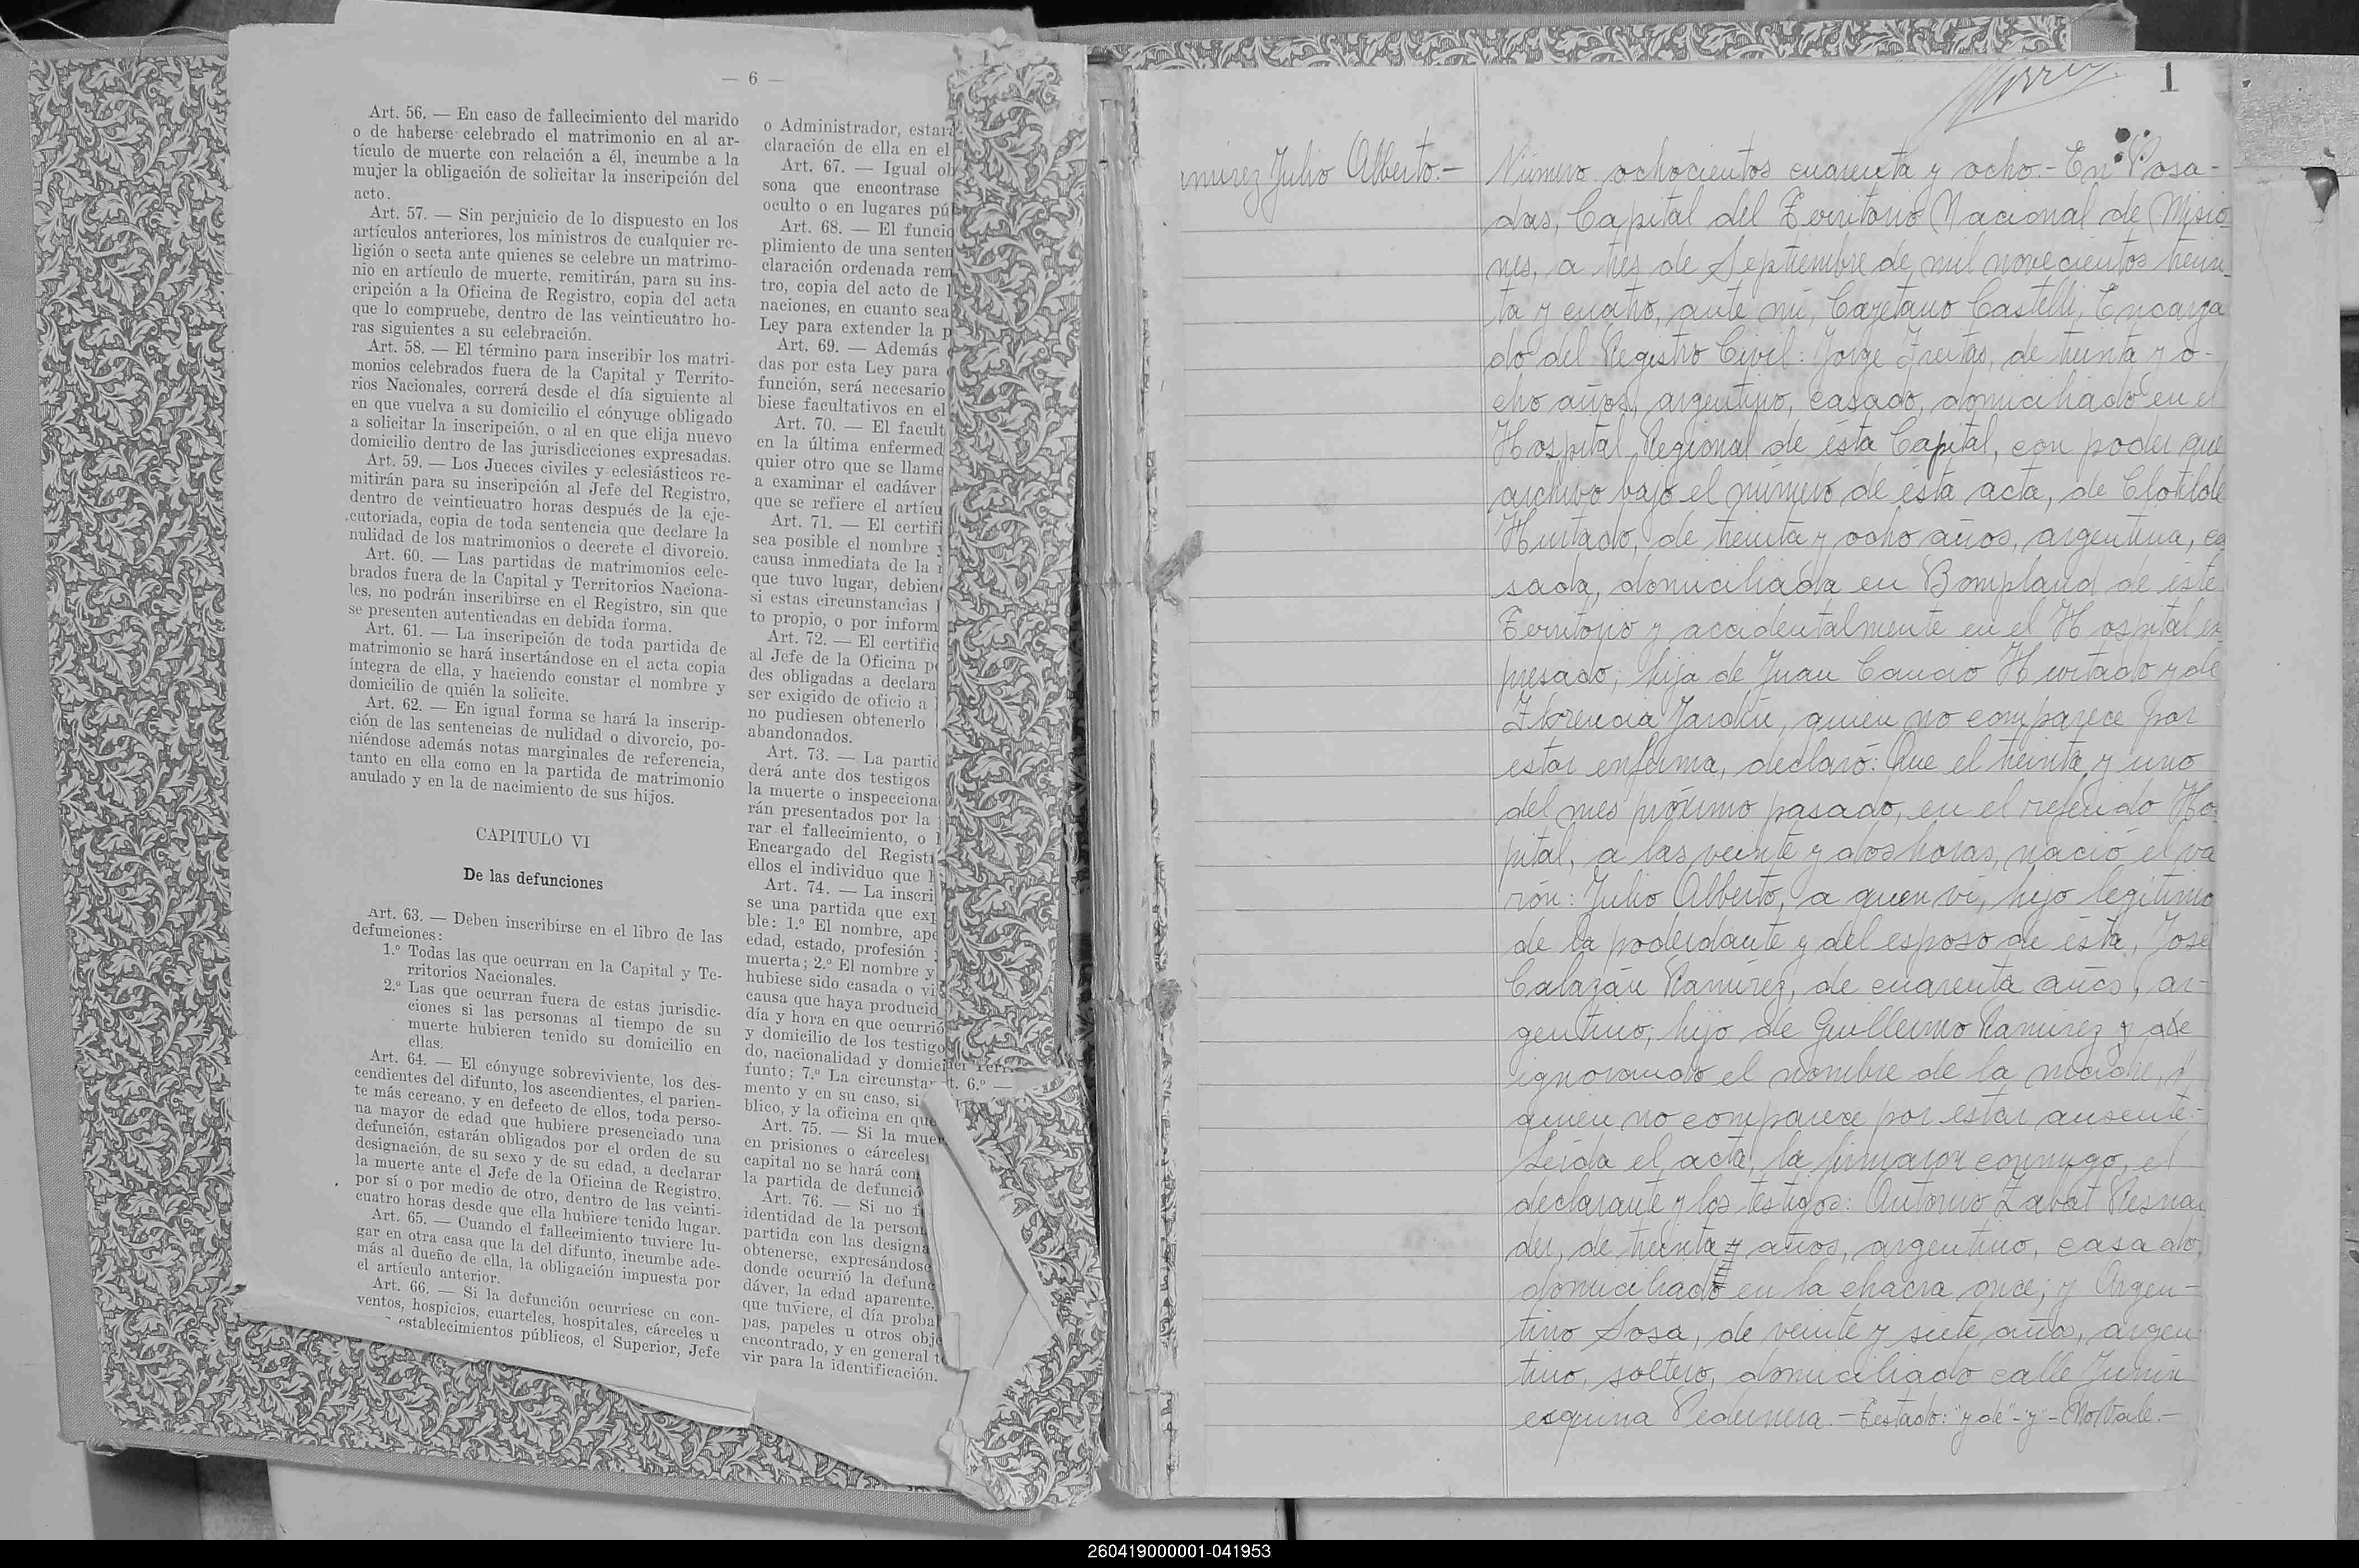 — 6 —
Art. 56. — En caso de fallecimiento del marido
o de haberse celebrado el matrimonio en al ar-
tículo de muerte con relación a él, incumbe a la
mujer la obligación de solicitar la inscripción del
acto.
Art. 57. — Sin perjuicio de lo dispuesto en los
artículos anteriores, los ministros de cualquier re-
ligión o secta ante quienes se celebre un matrimo-
nio en artículo de muerte, remitirán, para su ins-
cripción a la Oficina de Registro, copia del acta
que lo compruebe, dentro de las veinticuatro ho-
ras siguientes a su celebración.
Art. 58. — El término para inscribir los matri-
monios celebrados fuera de la Capital y Territo-
rios Nacionales, correrá desde el día siguiente al
en que vuelva a su domicilio el cónyuge obligado
a solicitar la inscripción, o al en que elija nuevo
domicilio dentro de las jurisdicciones expresadas.
Art. 59. — Los Jueces civiles y eclesiásticos re-
mitirán para su inscripción al Jefe del Registro,
dentro de veinticuatro horas después de la eje-
cutoriada, copia de toda sentencia que declare la
nulidad de los matrimonios o decrete el divorcio.
Art. 60. — Las partidas de matrimonios cele-
brados fuera de la Capital y Territorios Naciona-
les, no podrán inscribirse en el Registro, sin que
se presenten autenticadas en debida forma.
Art. 61. — La inscripción de toda partida de
matrimonio se hará insertándose en el acta copia
íntegra de ella, y haciendo constar el nombre y
domicilio de quién la solicite.
Art. 62. — En igual forma se hará la inscrip-
ción de las sentencias de nulidad o divorcio, po-
niéndose además notas marginales de referencia,
tanto en ella como en la partida de matrimonio
anulado y en la de nacimiento de sus hijos.
CAPITULO VI
De las defunciones
Art. 63. — Deben inscribirse en el libro de las
defunciones:
1.º Todas las que ocurran en la Capital y Te-
rritorios Nacionales.
2.º Las que ocurran fuera de estas jurisdic-
ciones si las personas al tiempo de su
muerte hubieren tenido su domicilio en
ellas.
Art. 64. — El cónyuge sobreviviente, los des-
cendientes del difunto, los ascendientes, el parien-
te más cercano, y en defecto de ellos, toda perso-
na mayor de edad que hubiere presenciado una
defunción, estarán obligados por el orden de su
designación, de su sexo y de su edad, a declarar
la muerte ante el Jefe de la Oficina de Registro.
por sí o por medio de otro, dentro de las veinti-
cuatro horas desde que ella hubiere tenido lugar.
Art. 65. — Cuando el fallecimiento tuviere lu-
gar en otra casa que la del difunto, incumbe ade-
más al dueño de ella, la obligación impuesta por
el artículo anterior.
Art. 66. — Si la defunción ocurriese en con-
ventos, hospicios, cuarteles, hospitales, cárceles u
establecimientos públicos, el Superior, Jefe
o Administrador, estará
claración de ella en el
Art. 67. — Igual ob
sona que encontrase
oculto o en lugares pú
Art. 68. — El funcio
plimiento de una senten
claración ordenada rem
tro, copia del acto de
naciones, en cuanto sea
Ley para extender la p
Art. 69. — Además
das por esta Ley para
función, será necesario
biese facultativos en el
Art. 70. — El facult
en la última enfermed
quier otro que se llame
a examinar el cadáver
que se refiere el artícu
Art. 71. — El certifi
sea posible el nombre
causa inmediata de la
que tuvo lugar, debien
si estas circunstancias
to propio, o por inform
Art. 72. — El certific
al Jefe de la Oficina p
des obligadas a declara
ser exigido de oficio a
no pudiesen obtenerlo
abandonados.
Art. 73. — La partid
derá ante dos testigos
la muerte o inspecciona
rán presentados por la
rar el fallecimiento, o
Encargado del Regist
ellos el individuo que
Art. 74. — La inscri
se una partida que exp
ble: 1.º El nombre, ape
edad, estado, profesión
muerta; 2.º El nombre y
hubiese sido casada o vi
causa que haya producid
día y hora en que ocurrió
y domicilio de los testigo
do, nacionalidad y domici
funto; 7.º La circunstan
mento y en su caso, si
blico, y la oficina en que
Art. 75. — Si la muer
en prisiones o cárceles
capital no se hará cons
la partida de defunció
Art. 76. — Si no f
identidad de la person
partida con las designa
obtenerse, expresándose
donde ocurrió la defunc
dáver, la edad aparente,
que tuviere, el día proba
pas, papeles u otros obje
encontrado, y en general t
vir para la identificación.
t. 6.º —
1
mírez Julio Alberto.—
Número ochocientos cuarenta y ocho.- En Posa-
das, Capital del Territorio Nacional de Misio-
nes, a tres de Septiembre de mil novecientos trein-
ta y cuatro, ante mí, Cayetano Castelli, Encarga
do del Registro Civil: Jorge Freitas, de treinta y o-
cho años, argentino, casado, domiciliado en el
Hospital Regional de ésta Capital, con poder que
archivo bajo el número de ésta acta, de Clotilde
Hurtado, de treinta y ocho años, argentina, ca
sada, domiciliada en Bompland de éste
Territorio y accidentalmente en el Hospital ex-
presado; hija de Juan Cancio Hurtado y de
Florencia Jardín, quien no comparece por
estar enferma, declaró: Que el treinta y uno
del mes próximo pasado, en el referido Ho
pital, a las veinte y dos horas, nació el va
rón: Julio Alberto, a quien ví, hijo legítimo
de la poderdante y del esposo de ésta, José
Calazán Ramírez, de cuarenta años, ar-
gentino, hijo de Guillermo Ramírez y de
ignorando el nombre de la madre,
quien no comparece por estar ausente.-
Leída el acta, la firmaron conmigo, el
declarante y los testigos: Antonio Zabat Resna
der, de treinta y años, argentino, casado,
domiciliado en la chacra once; y Argen-
tino Sosa, de veinte y siete años, argen
tino, soltero, domiciliado calle Junín
esquina Pedernera.- Testado: "y de"-"y"- No Vale.-
260419000001-041953